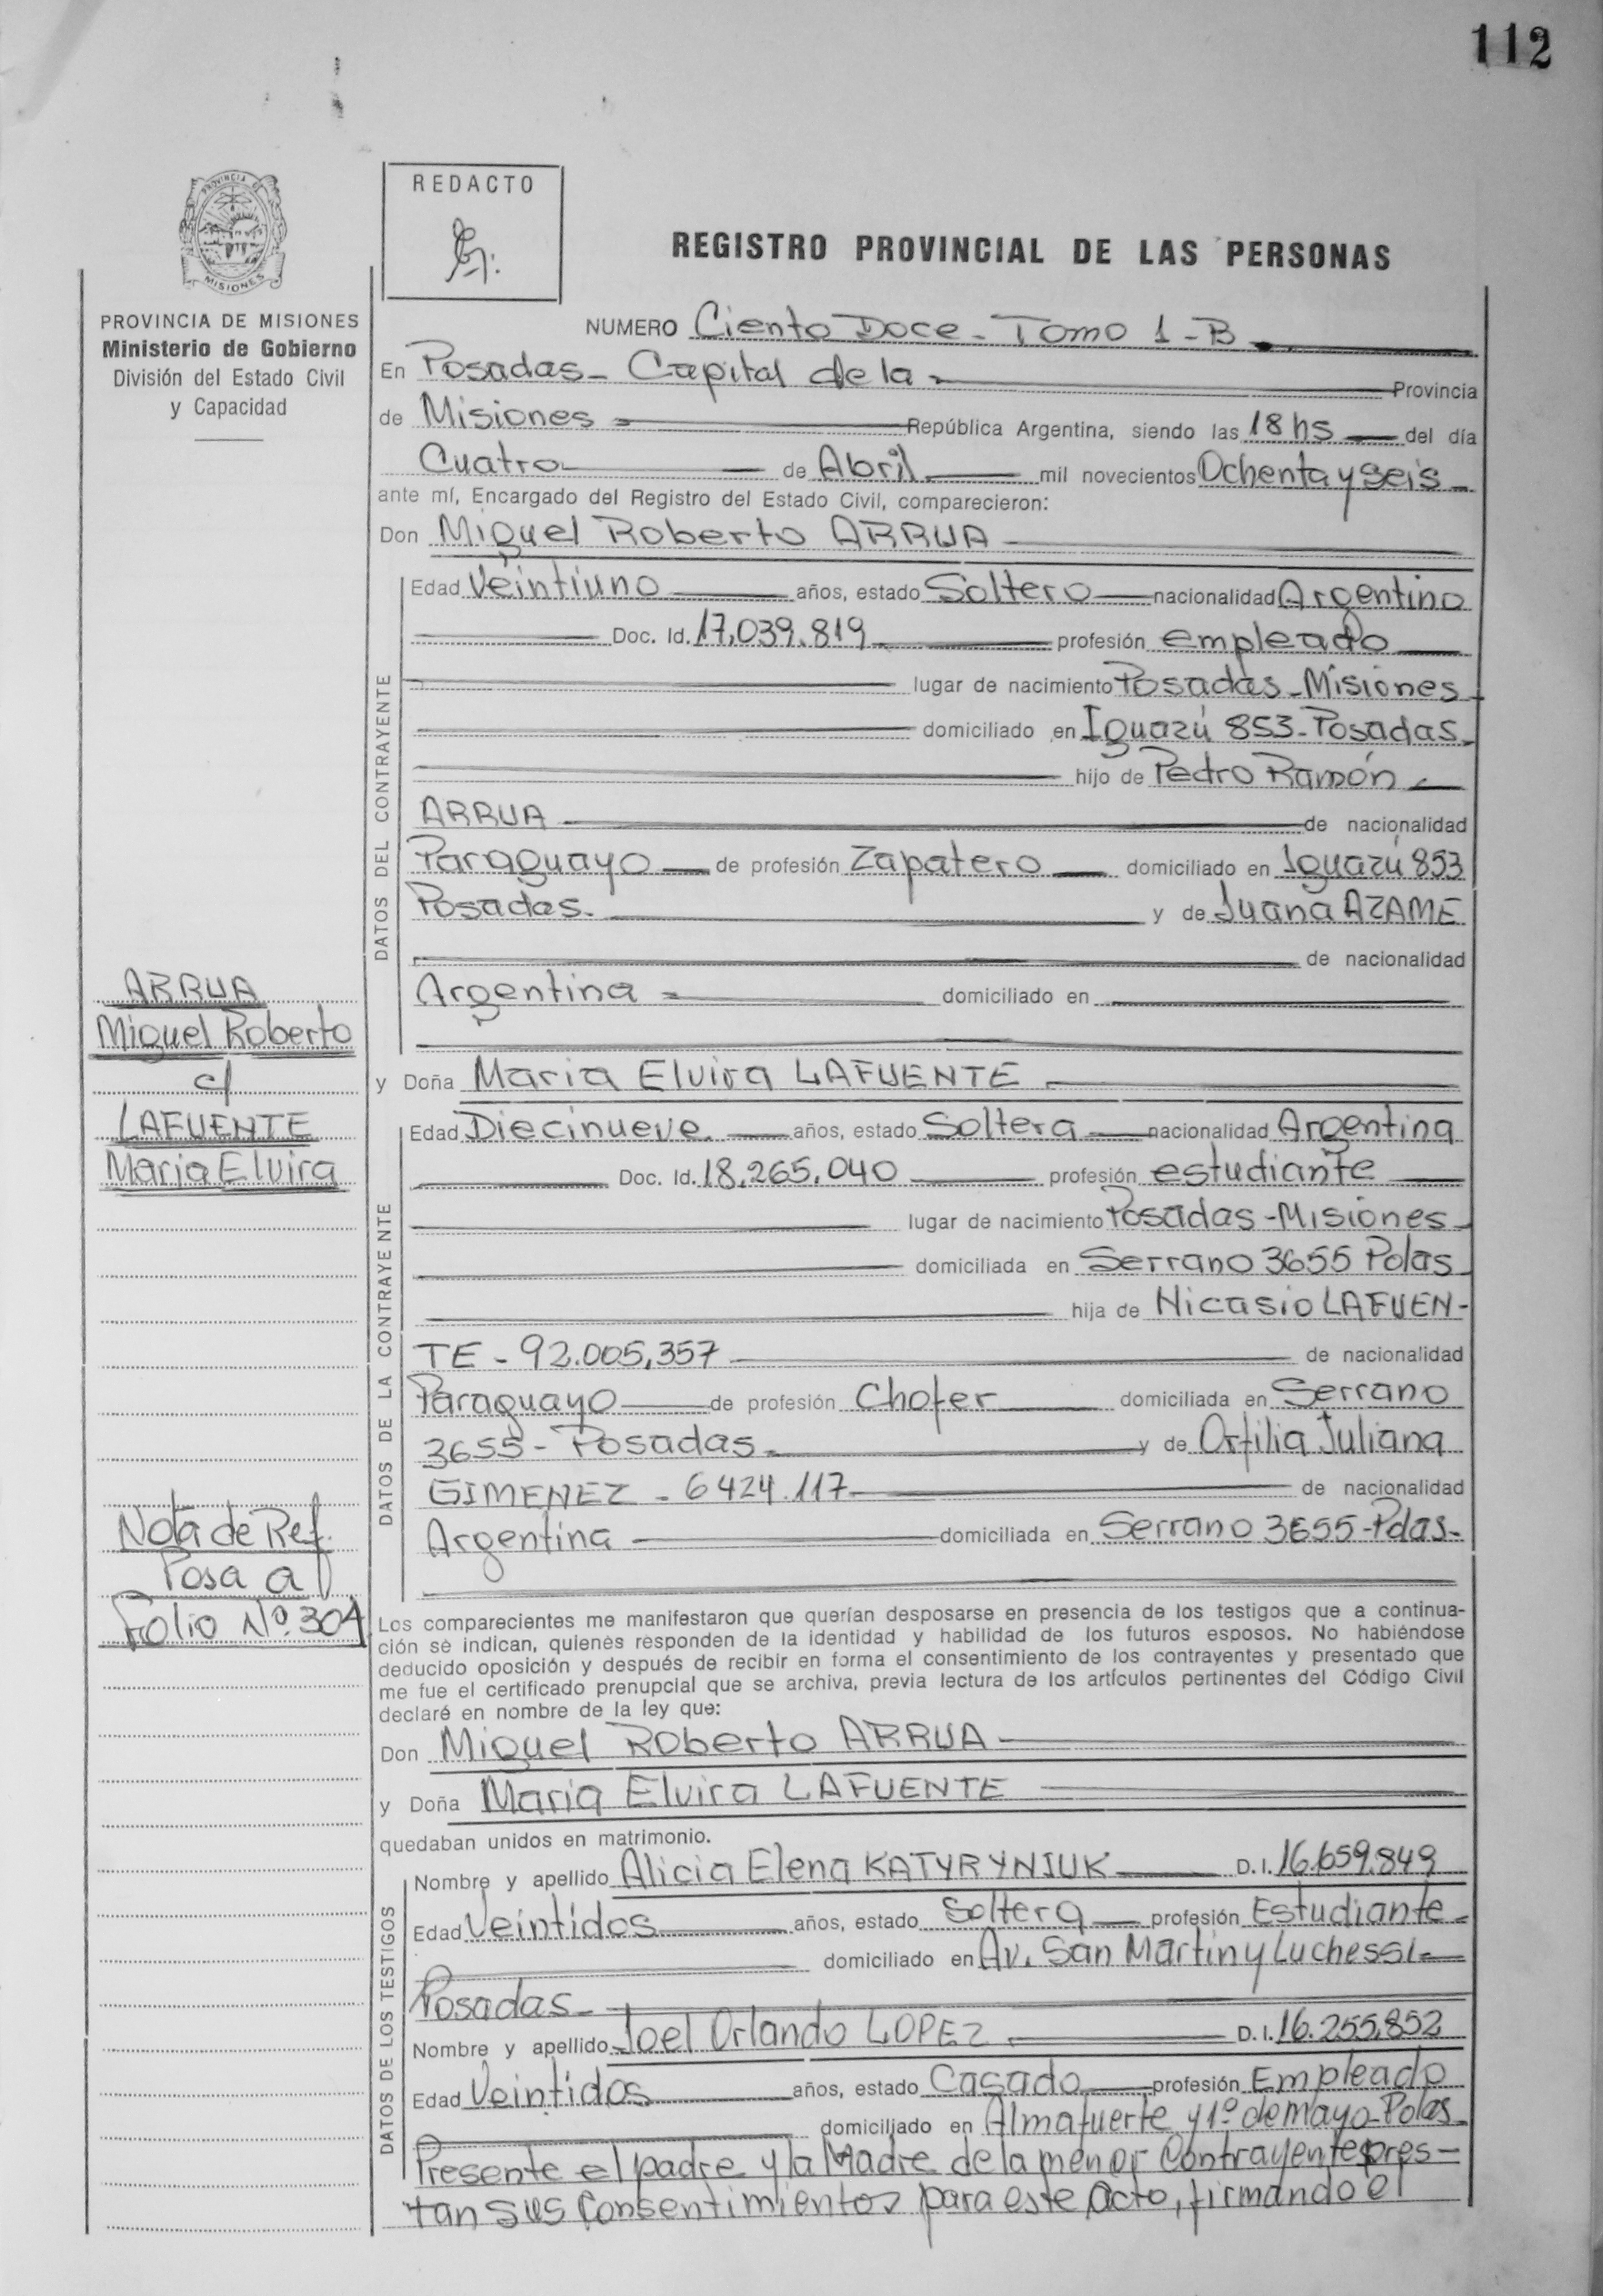 112
PROVINCIA DE
MISIONES
REDACTO
REGISTRO PROVINCIAL DE LAS PERSONAS
PROVINCIA DE MISIONES
Ministerio de Gobierno
División del Estado Civil
y Capacidad
NUMERO Ciento Doce - Tomo 1 - B
En Posadas - Capital de la Provincia
de Misiones República Argentina, siendo las 18 hs del día
Cuatro de Abril mil novecientos Ochenta y seis
ante mí, Encargado del Registro del Estado Civil, comparecieron:
Don Miguel Roberto ARRUA
DATOS DEL CONTRAYENTE
Edad Veintiuno años, estado Soltero nacionalidad Argentino
Doc. Id. 17.039.819 profesión empleado
lugar de nacimiento Posadas - Misiones
domiciliado en Iguazú 853 - Posadas
hijo de Pedro Ramón
ARRUA de nacionalidad
Paraguayo de profesión Zapatero domiciliado en Iguazú 853
Posadas. y de Juana AZAME
de nacionalidad
Argentina domiciliado en
ARRUA
Miguel Roberto
c/
LAFUENTE
Maria Elvira
y Doña Maria Elvira LAFUENTE
DATOS DE LA CONTRAYENTE
Edad Diecinueve años, estado Soltera nacionalidad Argentina
Doc. Id. 18.265.040 profesión estudiante
lugar de nacimiento Posadas - Misiones
domiciliada en Serrano 3655 Pdas
hija de Nicasio LAFUEN-
TE - 92.005.357 de nacionalidad
Paraguayo de profesión Chofer domiciliada en Serrano
3655 - Posadas y de Orfilia Juliana
GIMENEZ - 6424.117 de nacionalidad
Argentina domiciliada en Serrano 3655 - Pdas -
Nota de Ref.
Pasa a
Folio Nº 304
Los comparecientes me manifestaron que querían desposarse en presencia de los testigos que a continua-
ción se indican, quienes responden de la identidad y habilidad de los futuros esposos. No habiéndose
deducido oposición y después de recibir en forma el consentimiento de los contrayentes y presentado que
me fue el certificado prenupcial que se archiva, previa lectura de los artículos pertinentes del Código Civil
declaré en nombre de la ley que:
Don Miguel Roberto ARRUA
y Doña Maria Elvira LAFUENTE
quedaban unidos en matrimonio.
DATOS DE LOS TESTIGOS
Nombre y apellido Alicia Elena KATYRYNIUK D.I. 16.659.849
Edad Veintidos años, estado Soltera profesión Estudiante
domiciliado en Av. San Martin y Luchessi
Posadas
Nombre y apellido Joel Orlando LOPEZ D.I. 16.255.852
Edad Veintidos años, estado Casado profesión Empleado
domiciliado en Almafuerte y 1º de mayo - Pdas
Presente el padre y la Madre de la menor Contrayente pres-
tan sus Consentimientos para este Acto, firmando el